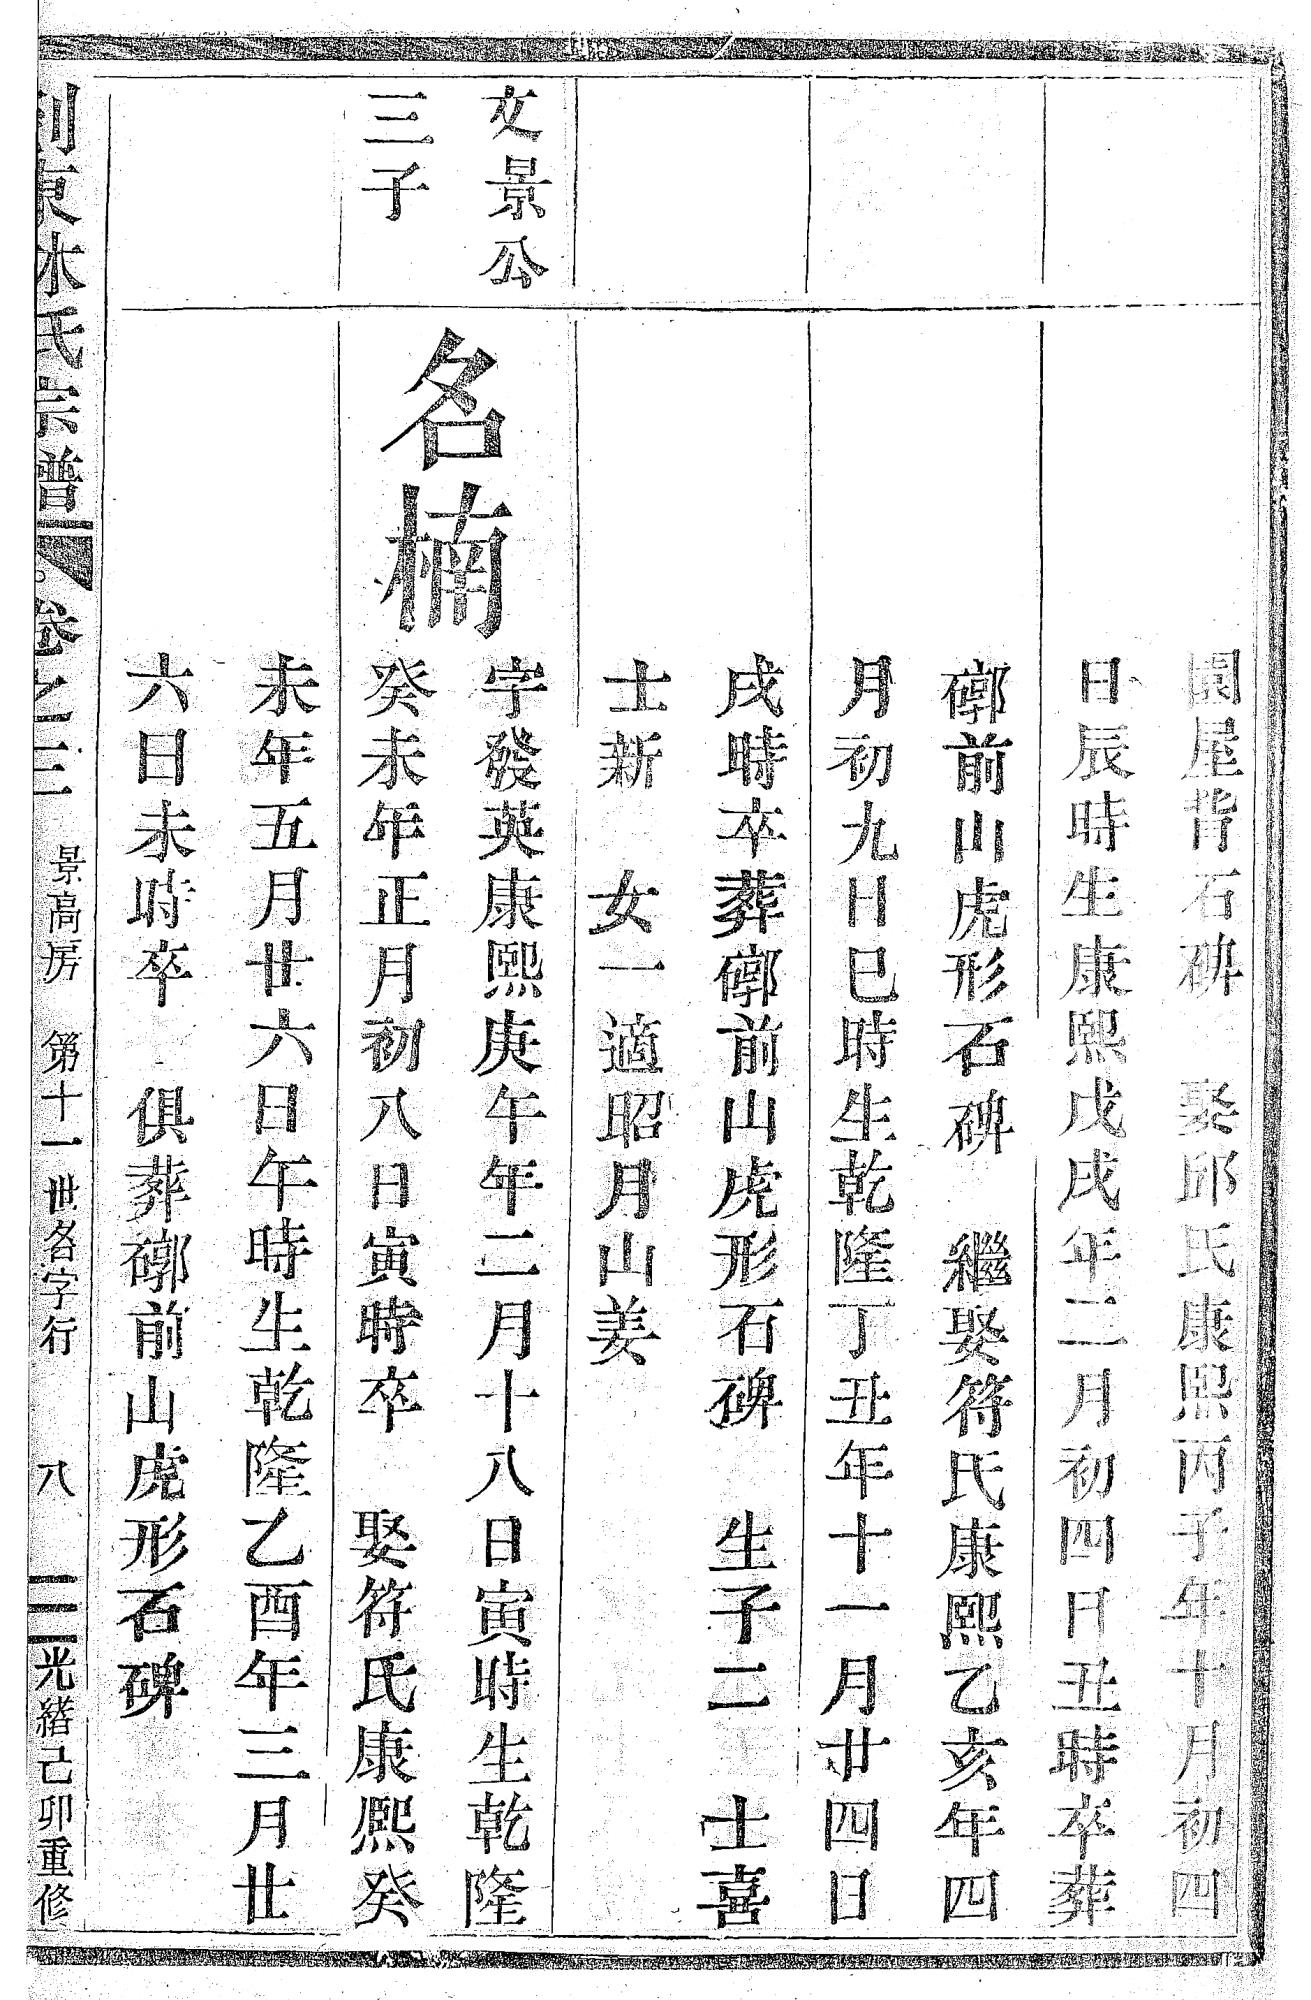 園屋背石碑　娶邱氏康熙丙子年十月初四
日辰時生康熙戊戌年二月初四日丑時卒葬
䃧前山虎形石碑　繼娶符氏康熙乙亥年四
月初九日巳時生乾隆丁丑年十一月廿四日
戌時卒葬䃧前山虎形石碑　生子二　士喜
士新　女一適昭月山姜
文景公
三子
名楠
字發英康熙庚午年二月十八日寅時生乾隆
癸未年正月初八日寅時卒　娶符氏康熙癸
未年五月廿六日午時生乾隆乙酉年三月廿
六日未時卒　俱葬䃧前山虎形石碑
東木氏宗譜　卷之三　景高房　第十一世名字行　八　光緒己卯重修